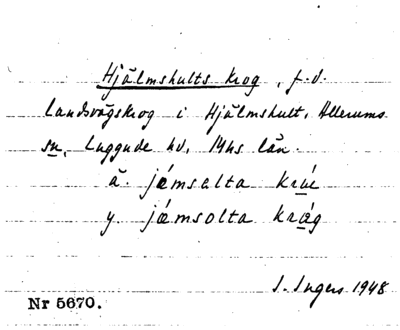 Hjälmshults krog, f.d.
landsvägskrog i Hjälmshult, Allerums
sn, Luggude hd, Mhs län.
ä. jámsalta
y. jámsolta
I. Ingers 1948
Nr 5670.